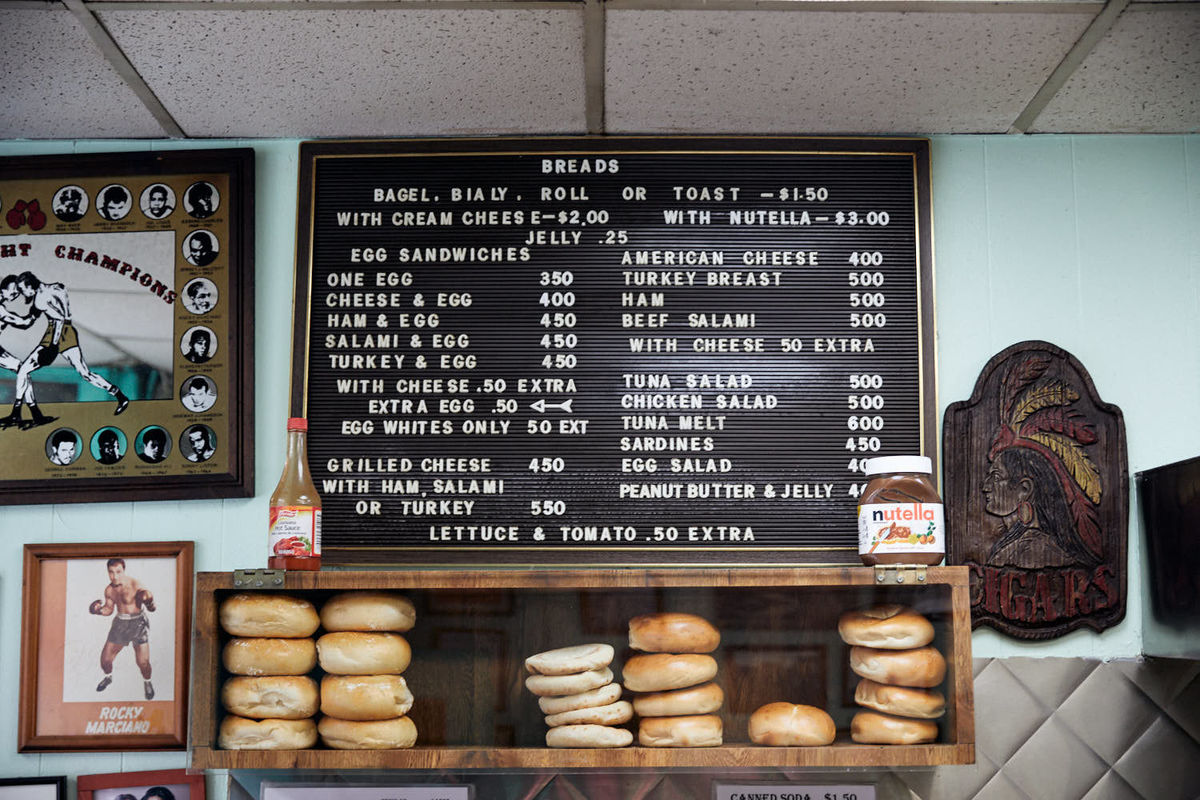 BREADS
BAGEL, BIALY, ROLL OR TOAST —$1.50
WITH CREAM CHEESE—$2.00 WITH NUTELLA—$3.00
JELLY .25
EGG SANDWICHES
ONE EGG 350
CHEESE & EGG 400
HAM & EGG 450
SALAMI & EGG 450
TURKEY & EGG 450
WITH CHEESE .50 EXTRA
EXTRA EGG .50
EGG WHITES ONLY 50 EXT
GRILLED CHEESE 450
WITH HAM, SALAMI
OR TURKEY 550
AMERICAN CHEESE 400
TURKEY BREAST 500
HAM 500
BEEF SALAMI 500
WITH CHEESE 50 EXTRA
TUNA SALAD 500
CHICKEN SALAD 500
TUNA MELT 600
SARDINES 450
EGG SALAD
PEANUT BUTTER & JELLY
LETTUCE & TOMATO .50 EXTRA
HT CHAMPIONS
ROCKY
MARCIANO
Hot Sauce
nutella
CIGARS
CANNED SODA $1.50